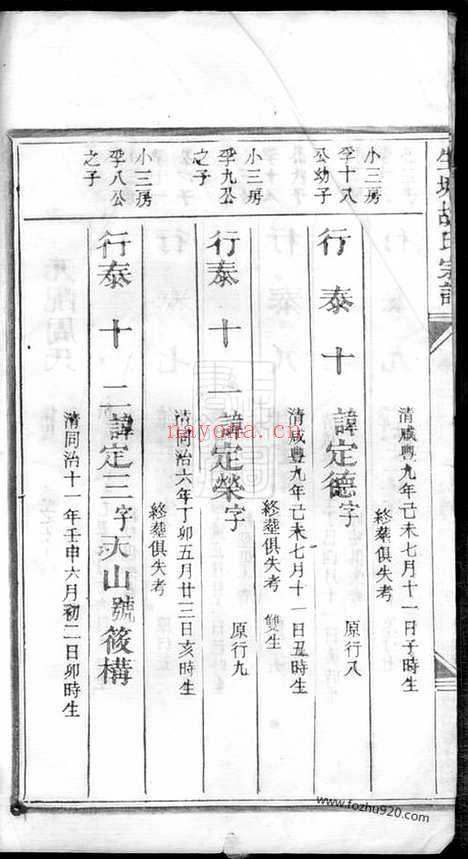 胡氏宗譜
清咸豐九年己未七月十一日子時生
終塟俱失考
小三房
孚十八
公幼子
行泰十
諱定德字
原行八
清咸豐九年己未七月十一日丑時生
終塟俱失考
雙生
小三房
孚九公
之子
行泰十一
諱定榮字
原行九
清同治六年丁卯五月廿三日亥時生
終塟俱失考
小三房
孚八公
之子
行泰十二
諱定三字天山號筱構
清同治十一年壬申六月初二日卯時生
nayona.cn
www.fozhu920.com